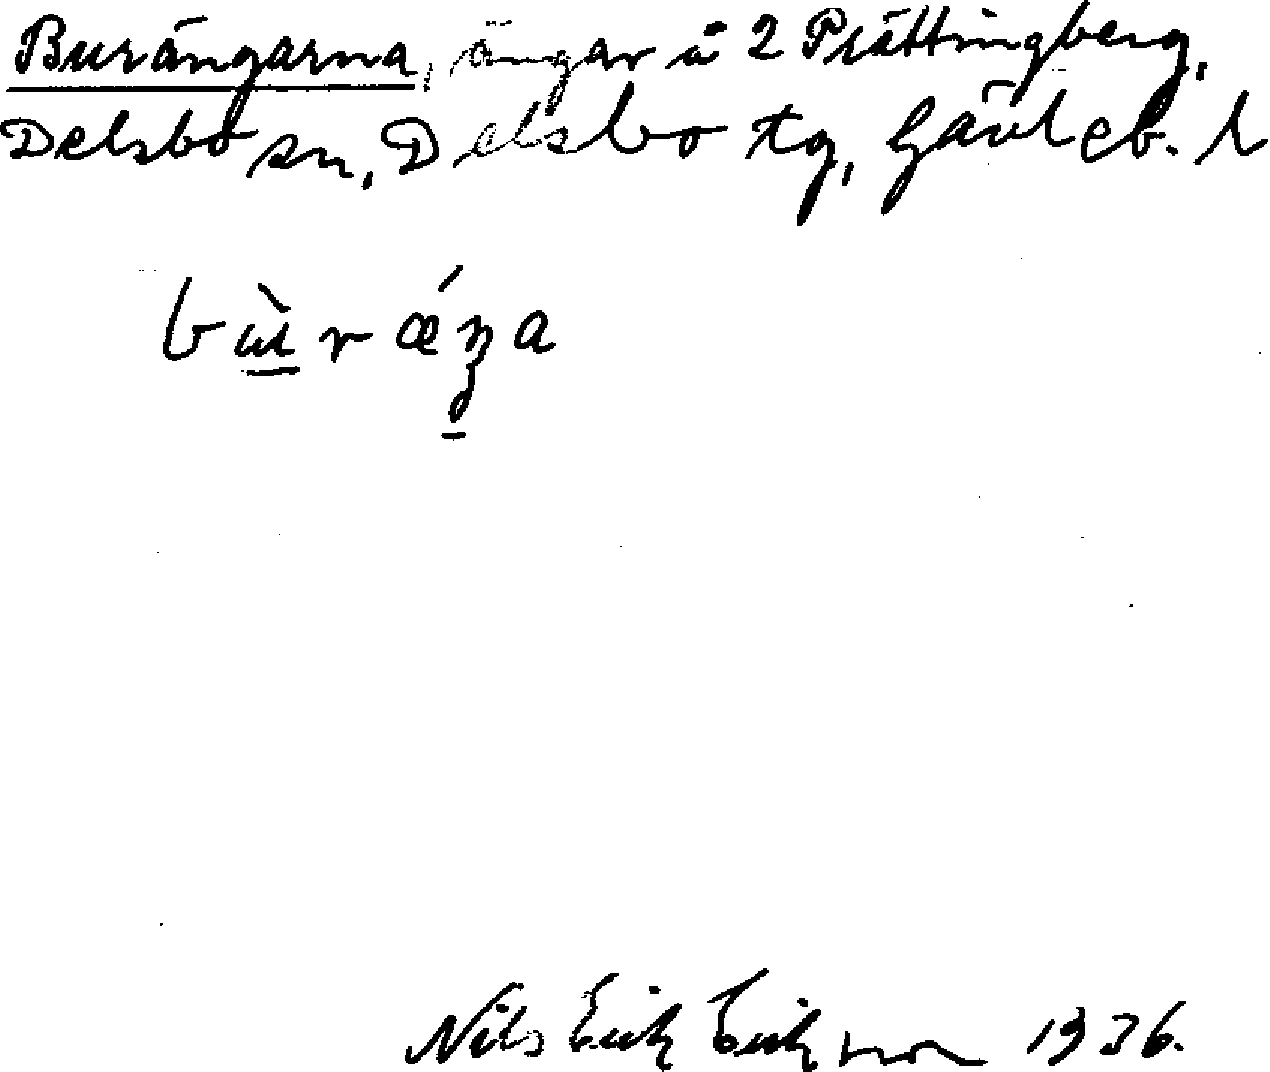 Burängarna, ängar å 2 Prästtingberg,
Delsbo sn, Delsbo tg, Gävleb. l
bu̱̇̀rǽŋa
Nils Erik Eriksson 1936.